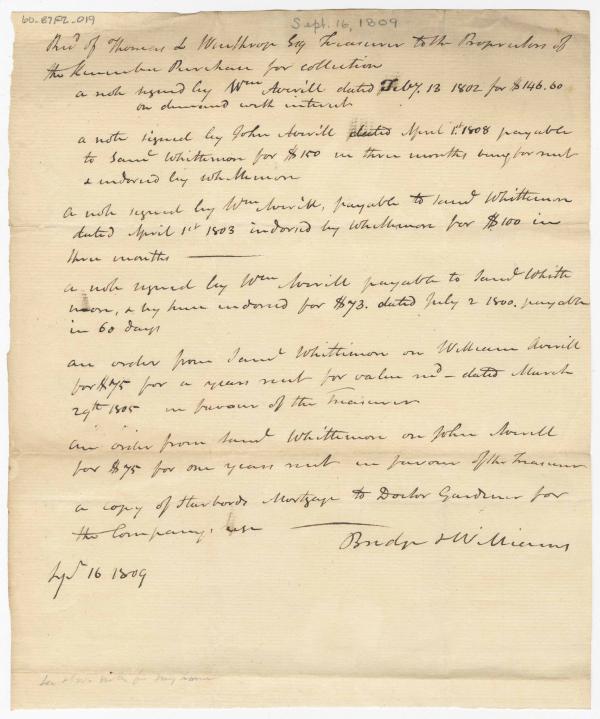 60-87F2-019
Sept. 16, 1809
Recd of Thomas L Winthrop Esq Treasurer to the Proprietors of
the Kennebec Purchase for collection
a note signed by Wm Averill dated Feby. 13 1802 for $146.60
on demand with interest
a note signed by John Averill dated April 1st 1808 payable
to Saml Whittemore for $150 in three months being for rent
& indorsed by Whittemore
a note signed by Wm Averill, payable to Saml Whittemore
dated April 1st 1803 indorsed by Whittemore for $100 in
three months
a note signed by Wm Averill payable to Saml Whitte
more, & by him indorsed for $73. dated July 2 1800. payable
in 60 days
an order from Saml Whittemore on William Averill
for $75 for a years rent for value recd - dated March
29th 1805 in favour of the Treasurer
an order from Saml Whittemore on John Averill
for $75 for one years rent in favour of the Treasurer
a copy of Harbords Mortgage to Doctor Gardiner for
the Company's use
Bridge & Williams
Sept 16 1809